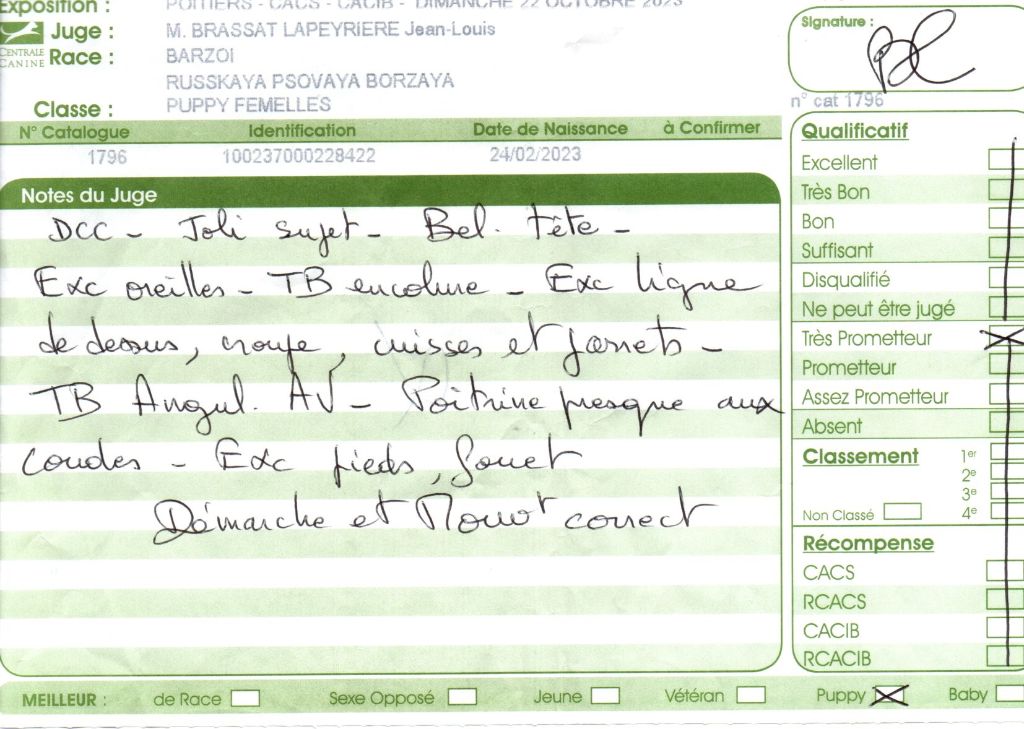 Exposition : POITIERS - CACS - CACIB - DIMANCHE 22 OCTOBRE 2023
Juge : M. BRASSAT LAPEYRIERE Jean-Louis
CENTRALE CANINE
Race : BARZOI
RUSSKAYA PSOVAYA BORZAYA
Classe : PUPPY FEMELLES
N° Catalogue Identification Date de Naissance à Confirmer
1796 100237000228422 24/02/2023
Notes du Juge
DCC - Joli sujet - Bel. tête -
Exc oreilles - TB encolure - Exc ligne
de dessus, croupe, cuisses et jarrets -
TB Angul. AV - Poitrine presque aux
coudes - Exc pieds, fouet
Démarche et Mouvt correct
Signature :
n° cat 1796
Qualificatif
Excellent
Très Bon
Bon
Suffisant
Disqualifié
Ne peut être jugé
Très Prometteur
Prometteur
Assez Prometteur
Absent
Classement 1er
2e
3e
Non Classé 4e
Récompense
CACS
RCACS
CACIB
RCACIB
MEILLEUR : de Race Sexe Opposé Jeune Vétéran Puppy Baby